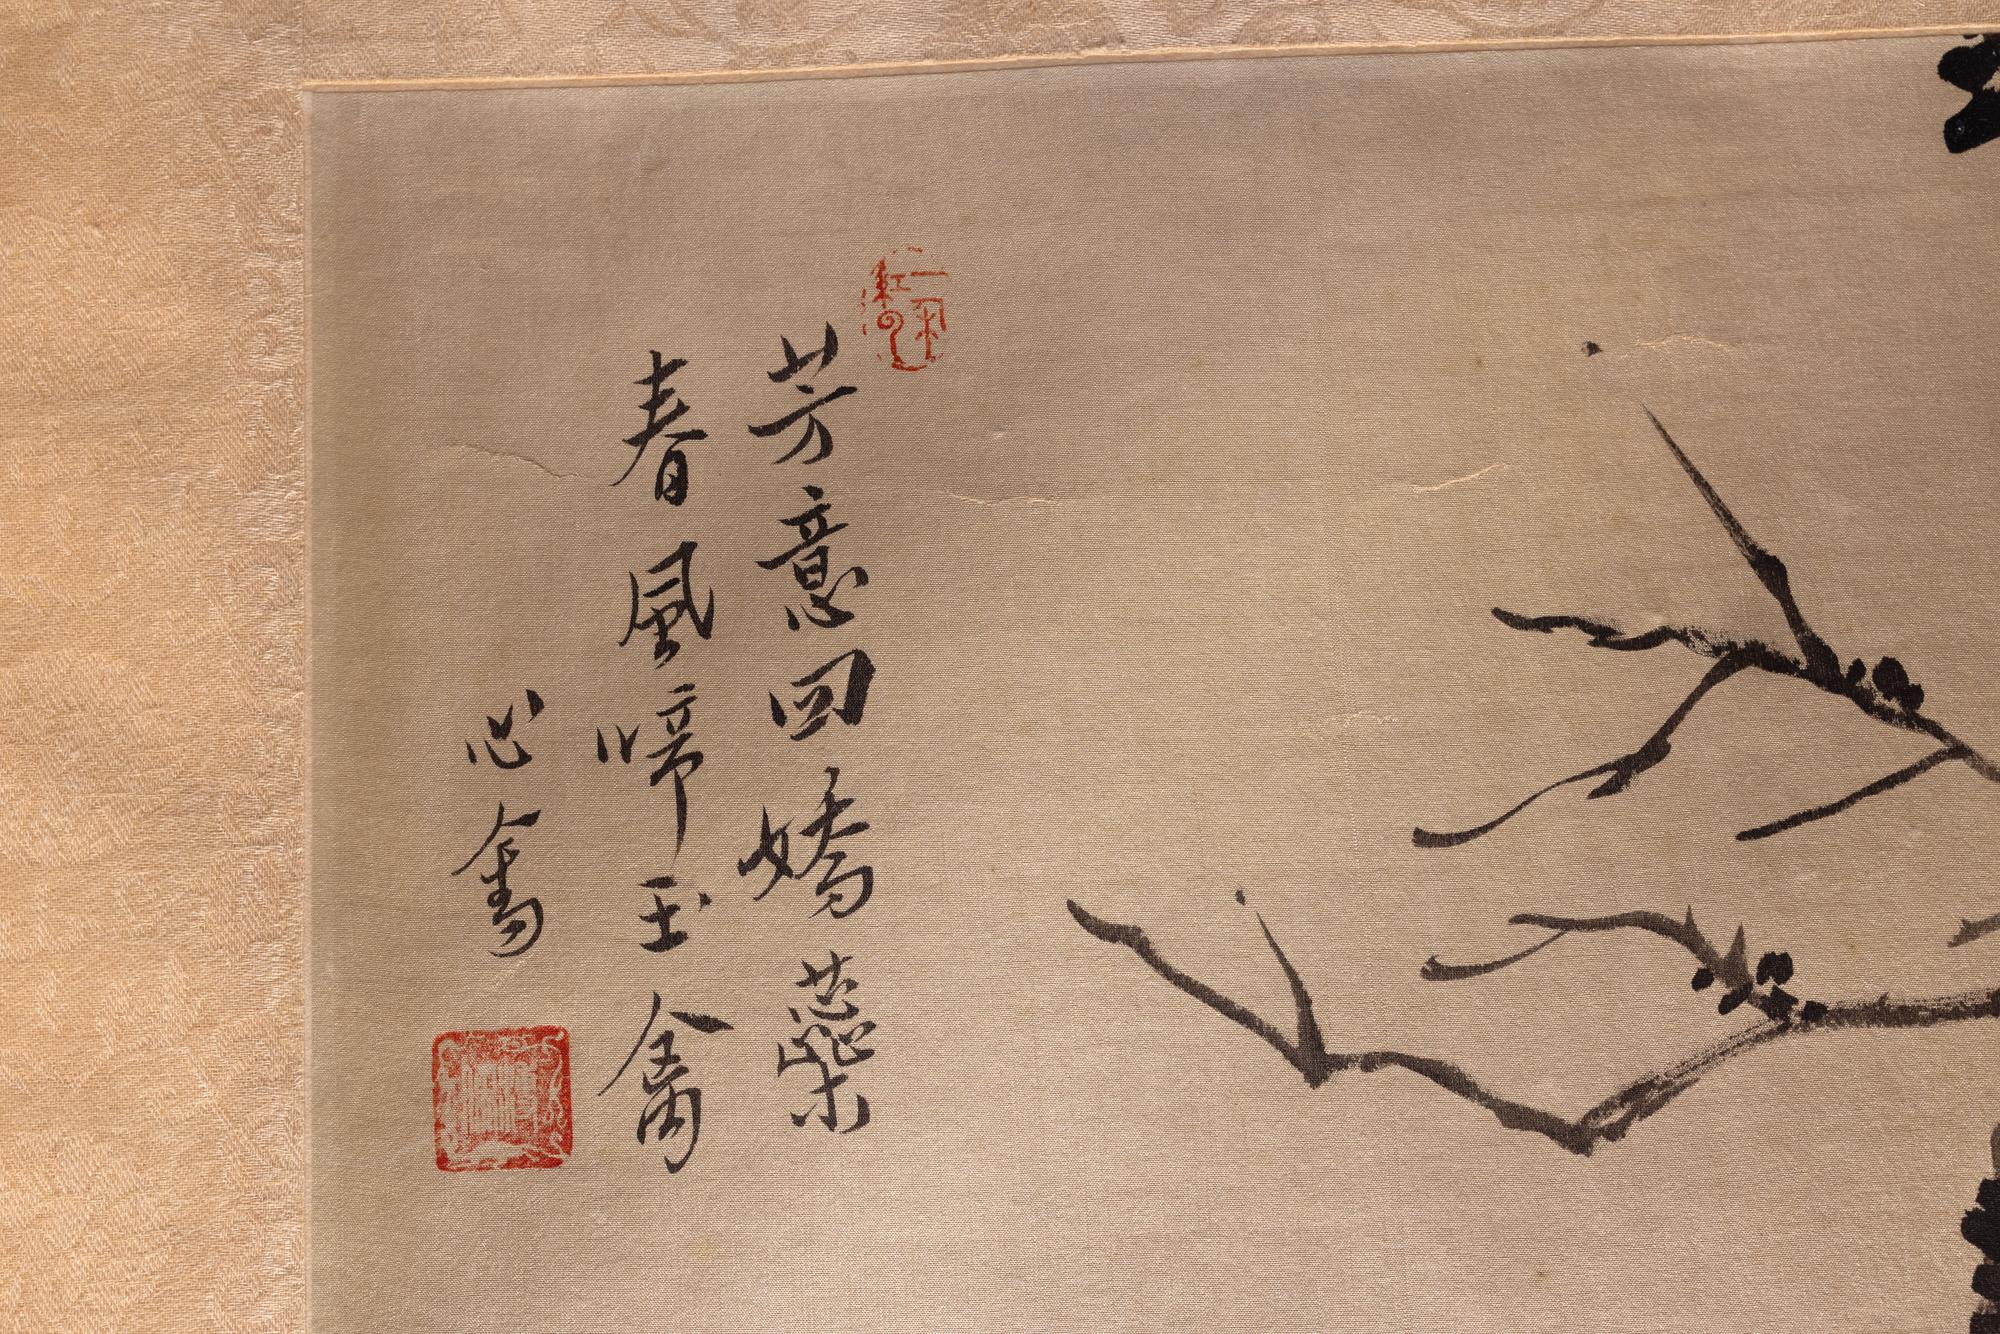 芳意回嬌蕊
春風啼玉禽
心畬